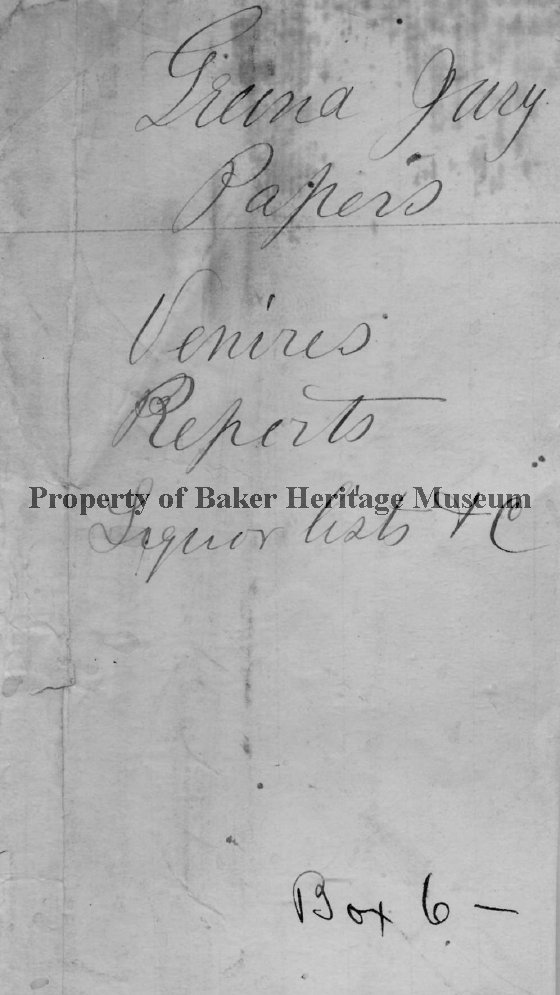 Grand Jury
Papers
Venires
Reports
Property of Baker Heritage Museum
Liquor lists & C
Box 6 —